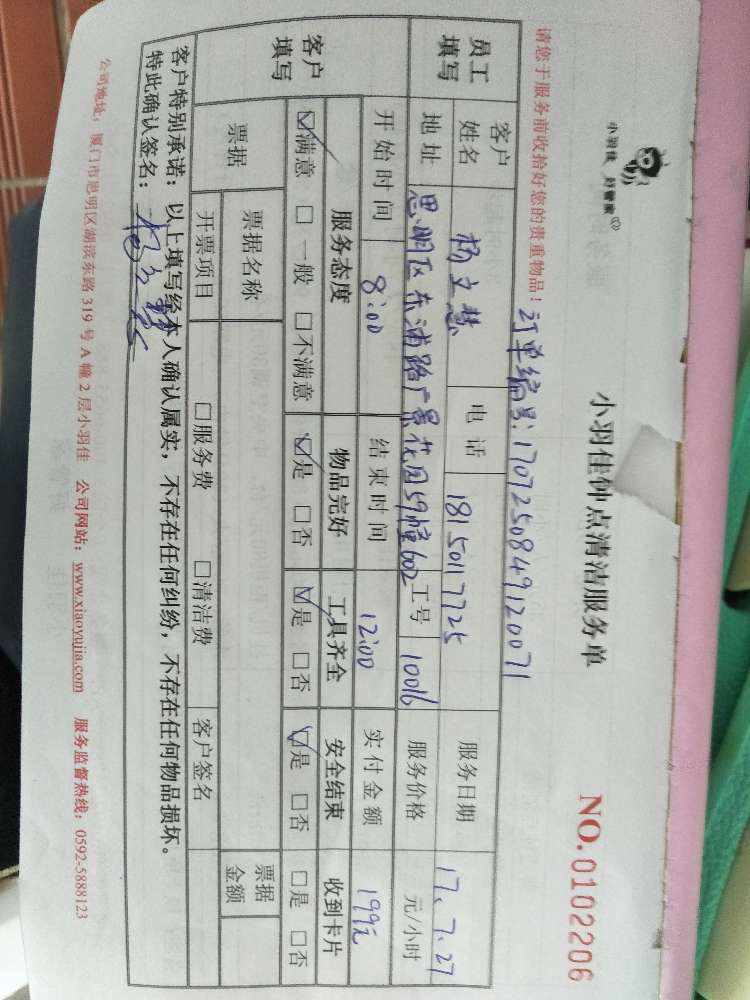 小羽佳 好管家
小羽佳钟点清洁服务单
NO.0102206
请您于服务前收拾好您的贵重物品！ 订单编号:1707250849120071
员工填写 客户姓名 杨文慧 电话 18150117725 服务日期 17.7.27
地址 思明区东浦路广景花园59幢602 工号 10016 服务价格 元/小时
开始时间 8:00 结束时间 12:00 实付金额 199元
客户填写 服务态度 物品完好 工具齐全 安全结束 收到卡片
☑满意 □一般 □不满意 ☑是 □否 ☑是 □否 ☑是 □否 □是 □否
票据 票据名称 票据金额
开票项目 □服务费 □清洁费 客户签名
客户特别承诺：以上填写经本人确认属实，不存在任何纠纷，不存在任何物品损坏。
特此确认签名：
公司地址：厦门市思明区湖滨东路319号A幢2层小羽佳 公司网站：www.xiaoyujia.com 服务监督热线：0592-5888123